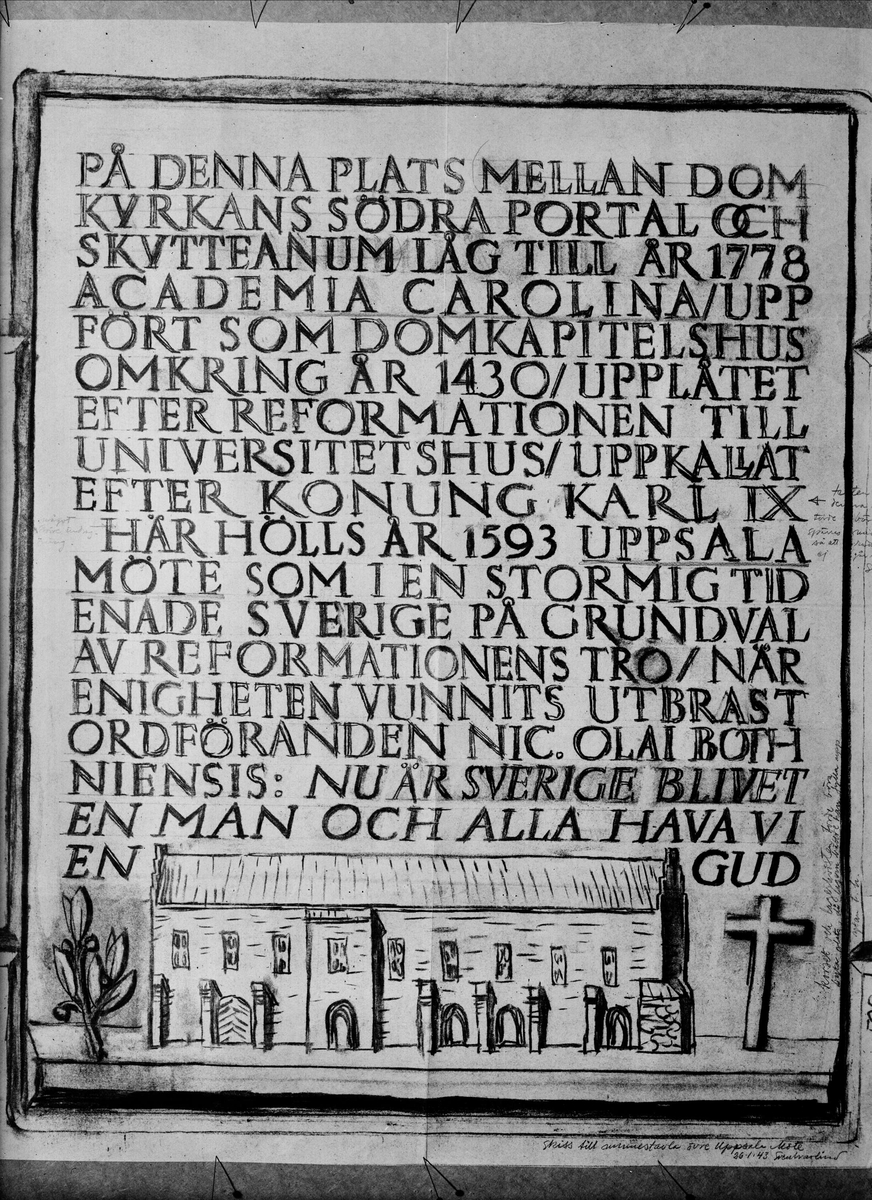 PÅ DENNA PLATS MELLAN DOM
KYRKANS SÖDRA PORTAL OCH
SKYTTEANUM LÅG TILL ÅR 1778
ACADEMIA CAROLINA/UPP
FÖRT SOM DOMKAPITELSHUS
OMKRING ÅR 1430/UPPLÅTET
EFTER REFORMATIONEN TILL
UNIVERSITETSHUS/UPPKALLAT
EFTER KONUNG KARL IX
HÄR HÖLLS ÅR 1593 UPPSALA
MÖTE SOM I EN STORMIG TID
ENADE SVERIGE PÅ GRUNDVAL
AV REFORMATIONENS TRO/NÄR
ENIGHETEN VUNNITS UTBRAST
ORDFÖRANDEN NIC. OLAI BOTH
NIENSIS: NU ÄR SVERIGE BLIVET
EN MAN OCH ALLA HAVA VI
EN GUD
Skiss till minnestavla över Uppsala Möte
26·1·43